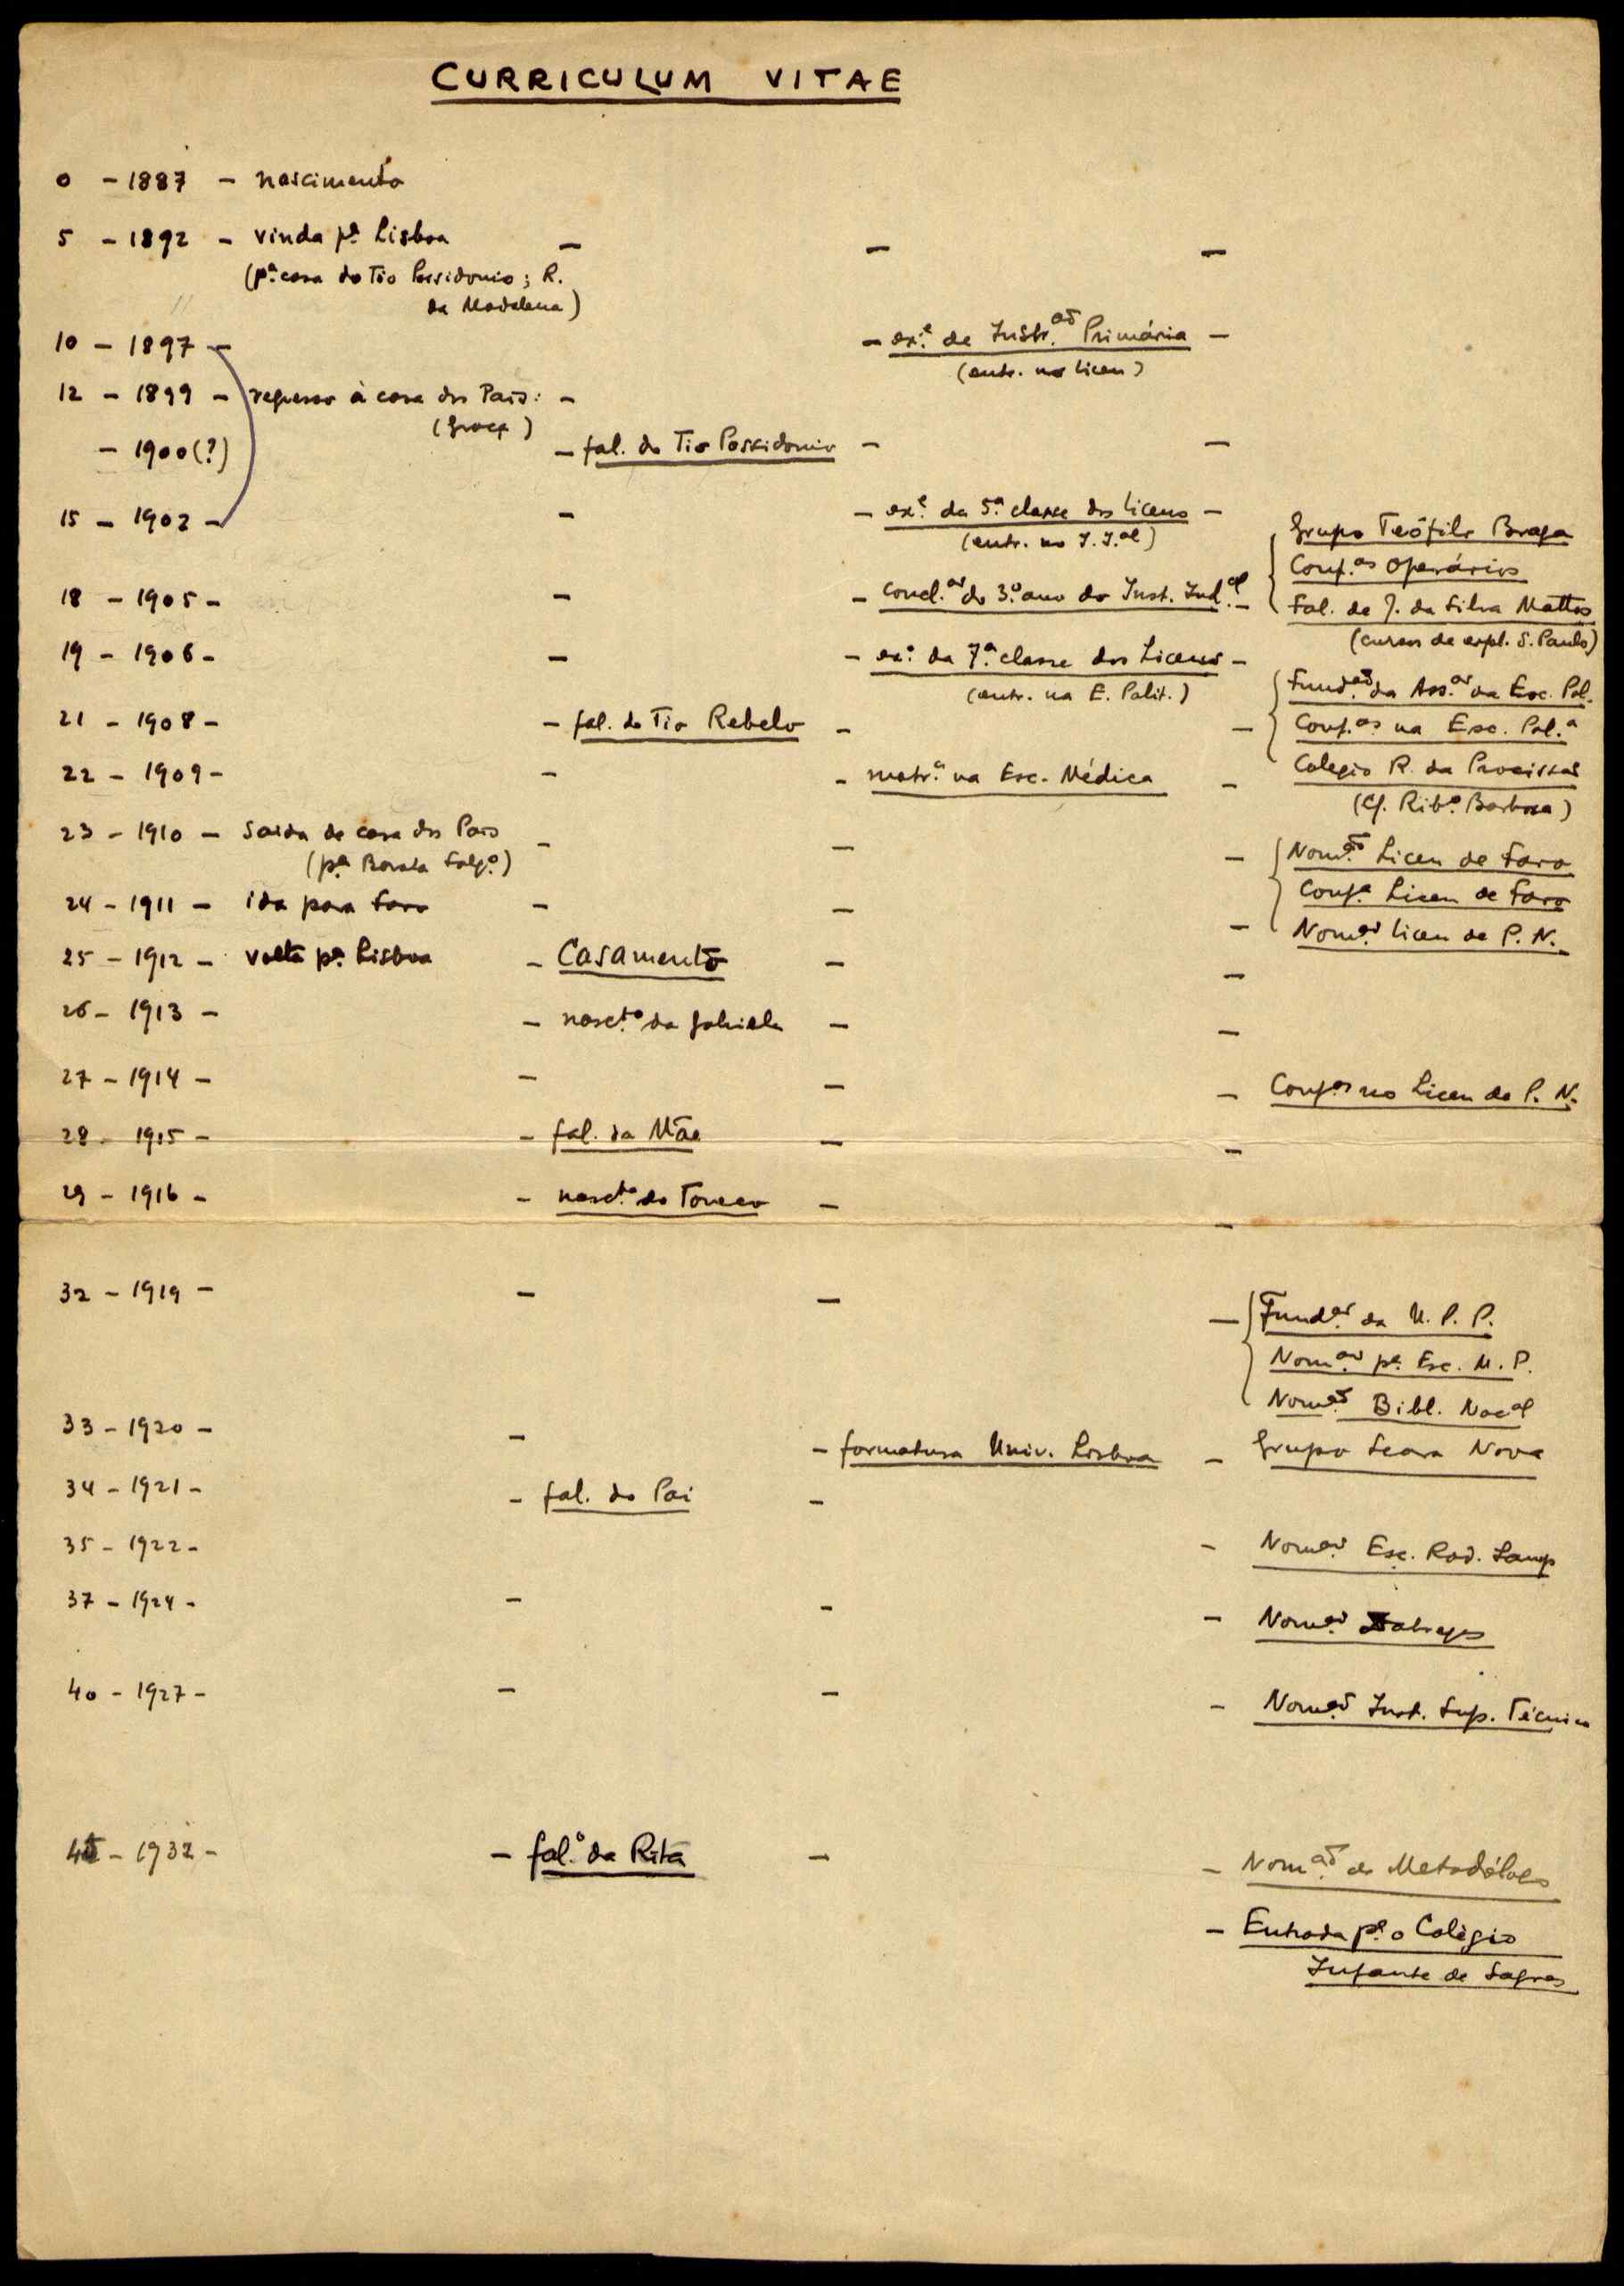 CURRICULUM VITAE
0 - 1887 - nascimento
5 - 1892 - vinda pª Lisboa - - -
(pª casa do Tio Possidonio; R.
da Madalena)
10 - 1897 - - exe. de Instr.ão Primária -
(entr. no liceu)
12 - 1899 - regresso à casa dos Pais: -
- 1900(?) - fal. do Tio Possidonio - -
15 - 1902 - - - exe. da 5.ª classe dos liceus -
(entr. no I. I.al)
Grupo Teófilo Braga
Conf.as operários
18 - 1905 - - - concl.ão do 3.º ano do Inst. Ind.al -
Fal. de J. da Silva Mattos
(cursos de expl. S. Paulo)
19 - 1906 - - - ex. da 7.ª classe dos Liceus -
(entr. na E. Polit.)
Fund.ão da Ass.ão da Esc. Pol.
21 - 1908 - - fal. do Tio Rebelo - - Conf.as na Esc. Pol.ª
22 - 1909 - - - matr.ª na Esc. Médica - Colegio R. da Procissão
(Cf. Rib.º Barbosa)
23 - 1910 - Saída de casa dos Pais - - - Nom.ão Liceu de Faro
(pª)
Conf.ª Liceu de Faro
24 - 1911 - ida para Faro - - - Nom.ão liceu de P. N.
25 - 1912 - volta pª Lisboa - Casamento - -
26 - 1913 - - nasc.to da Gabriela - -
27 - 1914 - - - - Conf.as no Liceu de P. N.
28 - 1915 - - fal. da Mãe - -
29 - 1916 - - nasc.to do - -
32 - 1919 - - - - Fund.ão da U. P. P.
Nom.ão pª Esc. M. P.
Nom.ão Bibl. Nac.al
33 - 1920 - - - formatura Univ. Lisboa - Grupo Seara Nova
34 - 1921 - - fal. do Pai -
35 - 1922 - - Nom.ão Esc. Rod. Samp
37 - 1924 - - - - Nom.ão Xabregas
40 - 1927 - - - - Nom.ão Inst. Sup. Técnico
45 - 1932 - - fal.º da Rita - - Nom.ão de Metodólogo
- Entrada pª o Colégio
Infante de Sagres